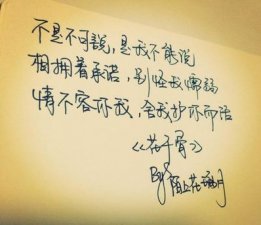 不是不可說，是我不能说
相拥着承诺，别怪我懦弱
情不容你我，舍我护你而活
《花千骨》
By 陌上花